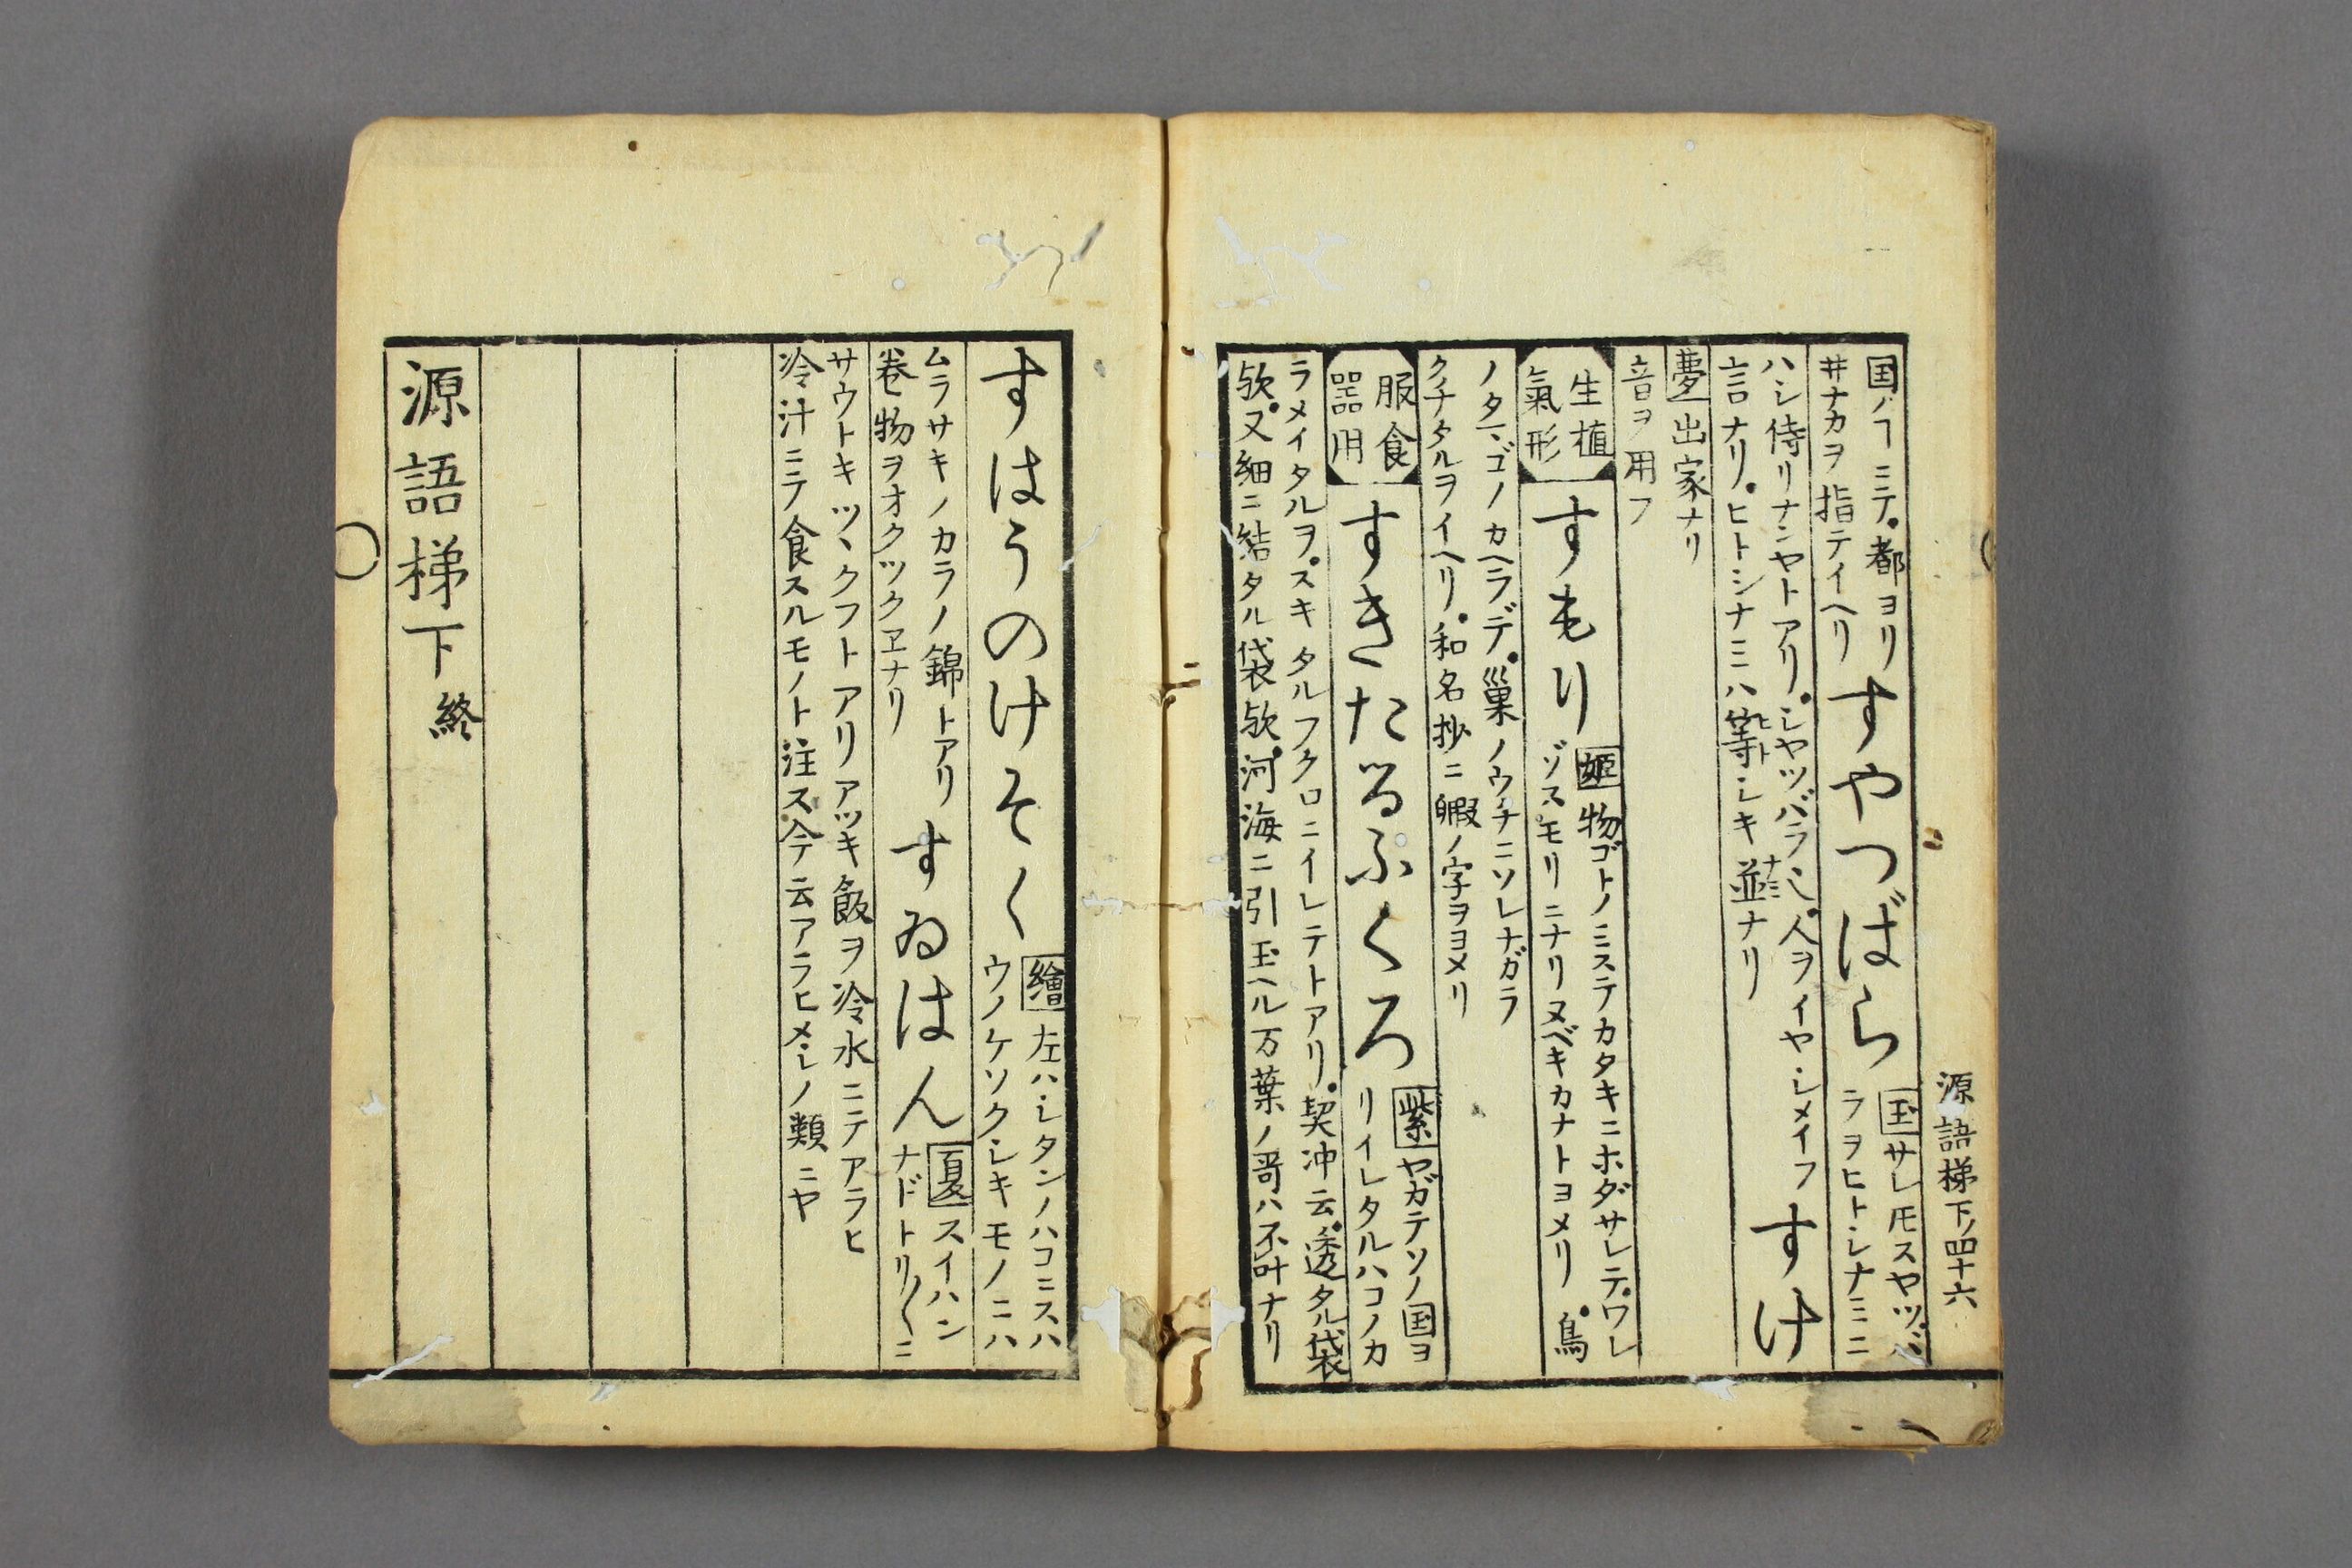 源語梯下ノ四十六
国ノヿミテ。都ヨリ
井ナカヲ指テイヘリ
すやつばら
玉サレ𪜈スヤツバ
ラヲヒトシナミニ
ハシ侍リナンヤトアリ。シヤツバラ也。人ヲイヤシメイフ
言ナリ。ヒトシナミハ等シキ並ナリ
ヒト
ナミ
すけ
夢出家ナリ
音ヲ用フ
生植
氣形
すもり
姫物ゴトノミステカタキニホダサレテ。ワレ
ゾスモリニナリヌベキカナトヨメリ。鳥
ノタマゴノカヘラデ。巣ノウチニソレナガラ
クチタルヲイヘリ。和名抄ニ毈ノ字ヲヨメリ
服食
器用
すきたるふくろ
紫ヤガテソノ国ヨ
リイレタルハコノカ
ラメイタルヲ。スキタルフクロニイレテトアリ。契冲云。透タル袋
欤。又細ニ結タル袋欤。河海ニ引玉ヘル万葉ノ哥ハ不叶ナリ
すはうのけそく
繪左ハシタンノハコニスハ
ウノケソクシキモノニハ
ムラサキノカラノ錦トアリ
卷物ヲオクツクヱナリ
すゐはん
夏スイハン
ナドトリ〱ニ
サウトキツヽクフトアリアツキ飯ヲ冷水ニテアラヒ
冷汁ニテ食スルモノト注ス今云アラヒメシノ類ニヤ
源語梯下終